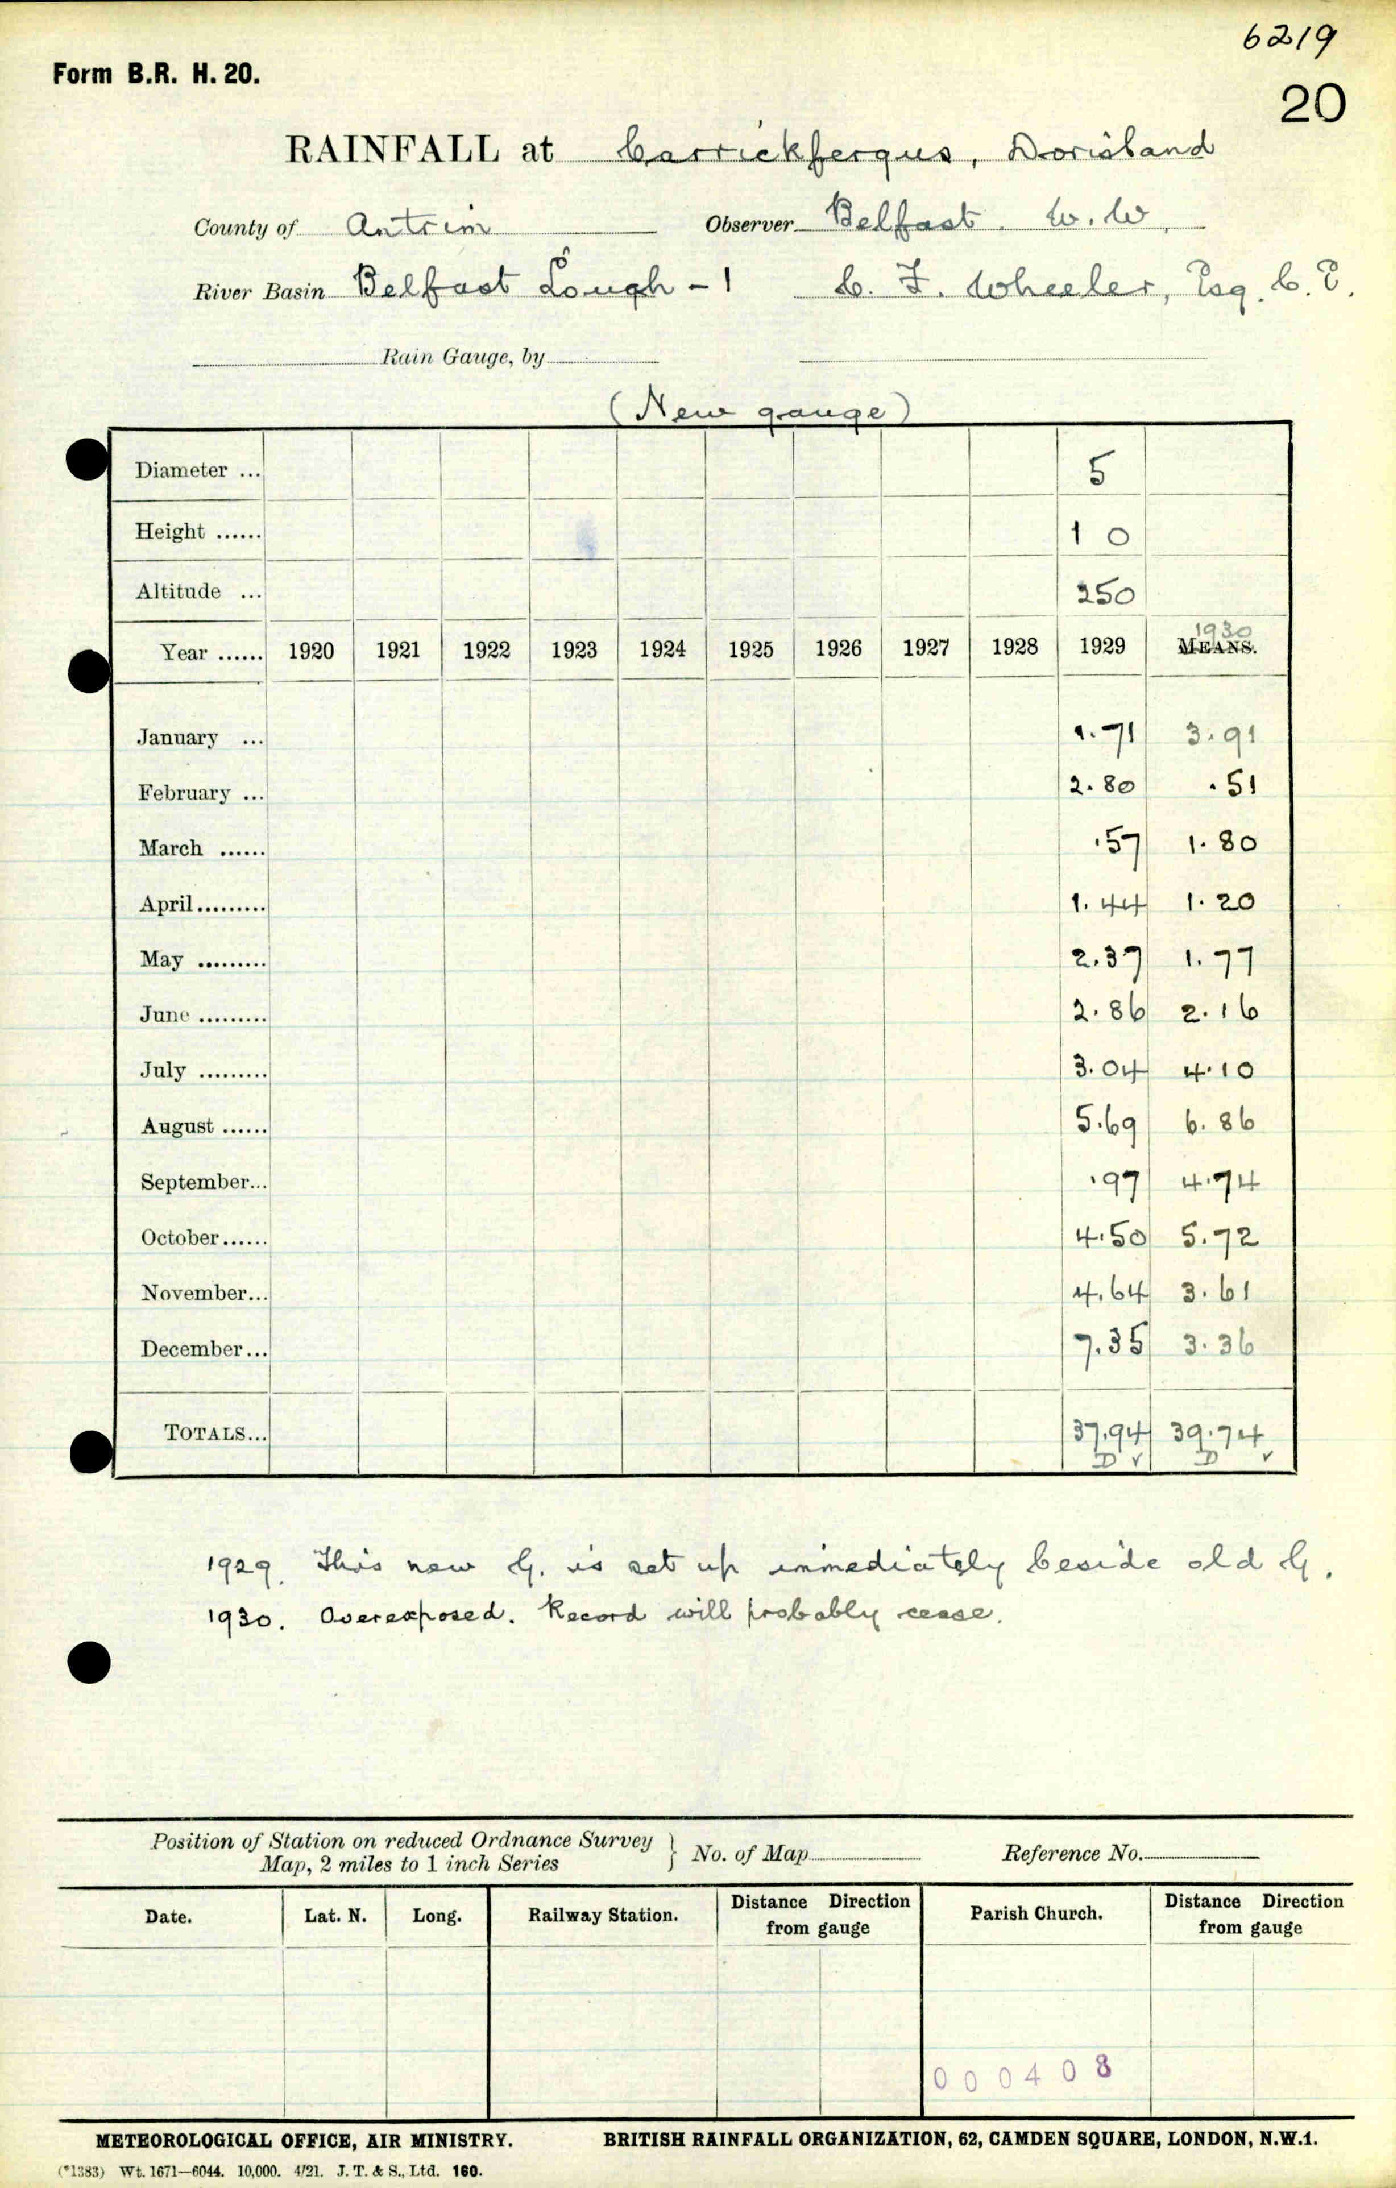 6219
Form B.R. H. 20.
20
RAINFALL at Carrickfergus, Dorisland
County of Antrim Observer Belfast W.W.
River Basin Belfast Lough - 1 C. F. Wheeler, Esq. C. E.
Rain Gauge, by
(New gauge)
Diameter ... 5
Height ...... 1 0
Altitude ... 250
Year ...... 1920 1921 1922 1923 1924 1925 1926 1927 1928 1929 MEANS. 1930
January ... 1.71 3.91
February ... 2.80 .51
March ...... .57 1.80
April......... 1.44 1.20
May ......... 2.37 1.77
June ......... 2.86 2.16
July ......... 3.04 4.10
August ...... 5.69 6.86
September... .97 4.74
October...... 4.50 5.72
November... 4.64 3.61
December... 7.35 3.36
TOTALS... 37.94 39.74
D v D v
1929. This new G. is set up immediately beside old G.
1930. Overexposed. Record will probably cease.
Position of Station on reduced Ordnance Survey
Map, 2 miles to 1 inch Series } No. of Map Reference No.
Date. Lat. N. Long. Railway Station. Distance Direction from gauge Parish Church. Distance Direction from gauge
000408
METEOROLOGICAL OFFICE, AIR MINISTRY. BRITISH RAINFALL ORGANIZATION, 62, CAMDEN SQUARE, LONDON, N.W.1.
(*1383) Wt. 1671—6044. 10,000. 4/21. J. T. & S., Ltd. 160.